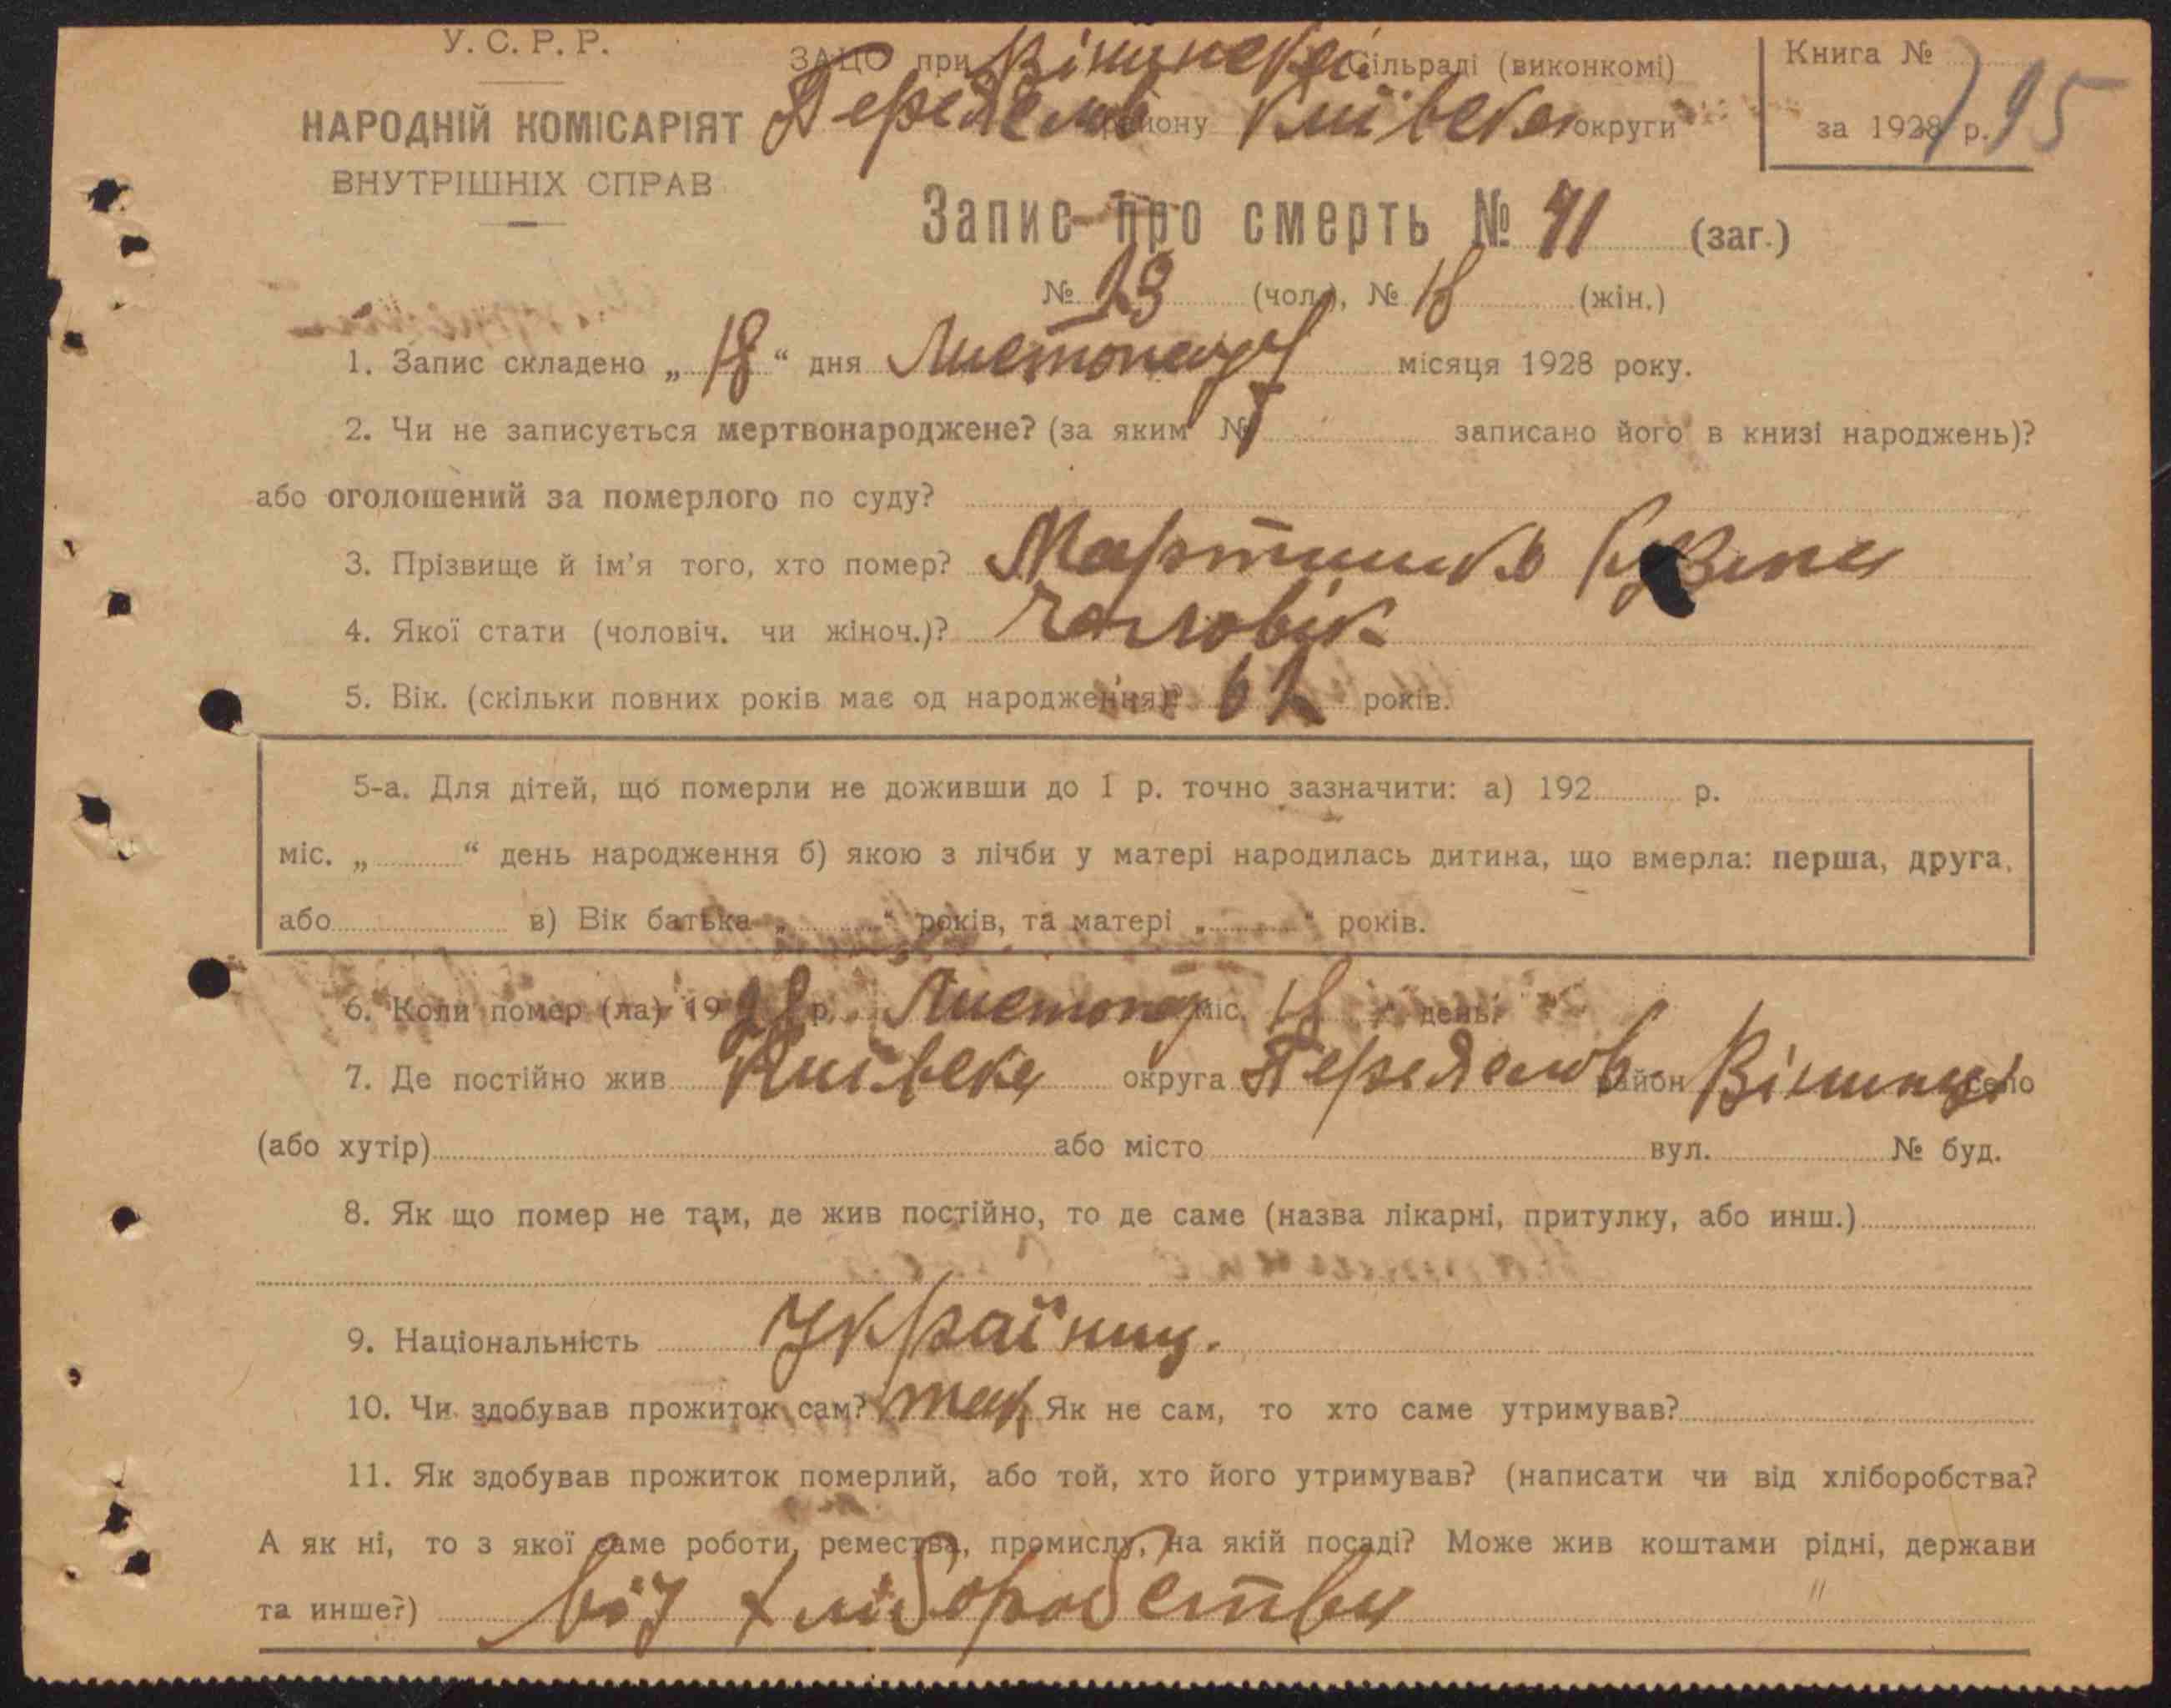 У. С. Р. Р.
НАРОДНІЙ КОМІСАРІЯТ
ВНУТРІШНІХ СПРАВ
ЗАЦС при Вінинській Сільраді (виконкомі)
району Київської округи
Книга №
за 1928 р. 195
Запис про смерть № 41 (заг.)
№ 23 (чол.), № 18 (жін.)
1. Запис складено „ 18 “ дня Листопада місяця 1928 року.
2. Чи не записується мертвонароджене? (за яким № записано його в книзі народжень)?
або оголошений за померлого по суду?
3. Прізвище й ім’я того, хто помер?
4. Якої стати (чоловіч. чи жіноч.)? Чоловік
5. Вік. (скільки повних років має од народження)? років.
5-а. Для дітей, що померли не доживши до 1 р. точно зазначити: а) 192 р.
міс. „ “ день народження б) якою з лічби у матері народилась дитина, що вмерла: перша, друга,
або в) Вік батька „ “ років, та матері „ “ років.
6. Коли помер (ла) 1928 р. Листопад міс. 18 день.
7. Де постійно жив Київська округа Переяслов район Вінинці село
(або хутір) або місто вул. № буд.
8. Як що помер не там, де жив постійно, то де саме (назва лікарні, притулку, або инш.)
9. Національність Українець.
10. Чи здобував прожиток сам? так Як не сам, то хто саме утримував?
11. Як здобував прожиток померлий, або той, хто його утримував? (написати чи від хліборобства?
А як ні, то з якої саме роботи, ремества, промислу, на якій посаді? Може жив коштами рідні, держави
та инше?) від хліборобства